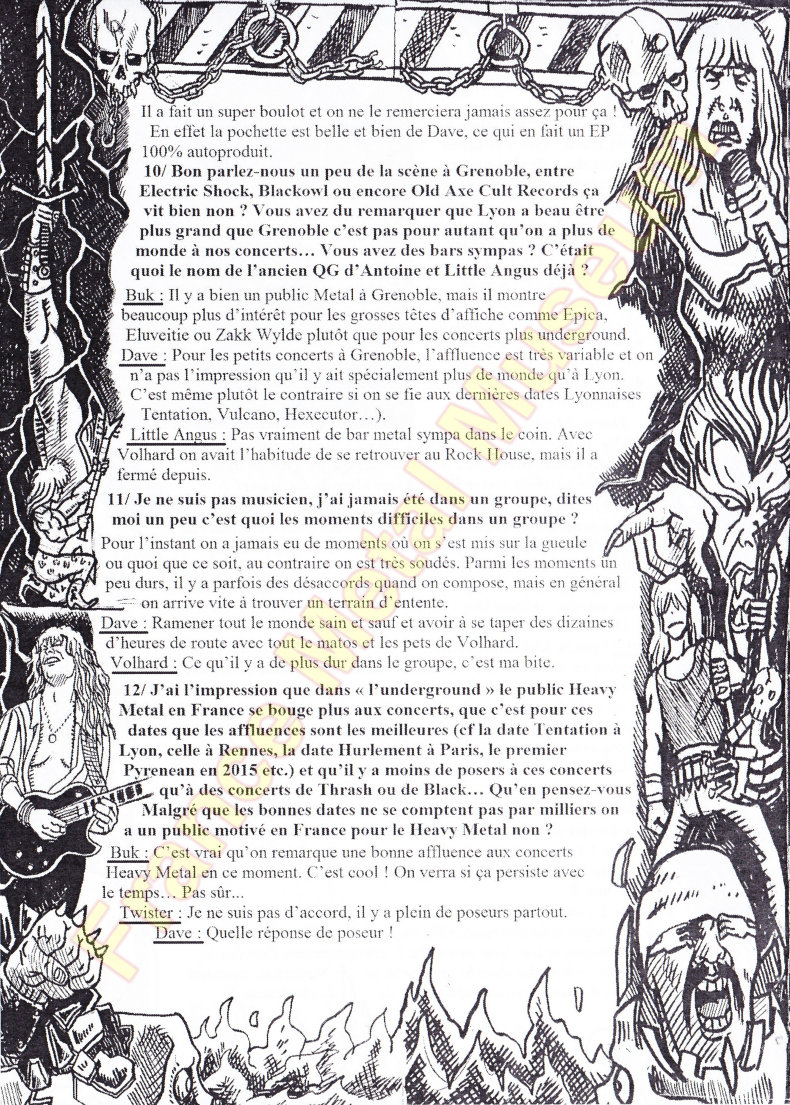 Il a fait un super boulot et on ne le remerciera jamais assez pour ça !
En effet la pochette est belle et bien de Dave, ce qui en fait un EP
100% autoproduit.
10/ Bon parlez-nous un peu de la scène à Grenoble, entre
Electric Shock, Blackowl ou encore Old Axe Cult Records ça
vit bien non ? Vous avez du remarquer que Lyon a beau être
plus grand que Grenoble c’est pas pour autant qu’on a plus de
monde à nos concerts… Vous avez des bars sympas ? C’était
quoi le nom de l’ancien QG d’Antoine et Little Angus déjà ?
Buk : Il y a bien un public Metal à Grenoble, mais il montre
beaucoup plus d’intérêt pour les grosses têtes d’affiche comme Epica,
Eluveitie ou Zakk Wylde plutôt que pour les concerts plus underground.
Dave : Pour les petits concerts à Grenoble, l’affluence est très variable et on
n’a pas l’impression qu’il y ait spécialement plus de monde qu’à Lyon.
C’est même plutôt le contraire si on se fie aux dernières dates Lyonnaises
Tentation, Vulcano, Hexecutor…).
Little Angus : Pas vraiment de bar metal sympa dans le coin. Avec
Volhard on avait l’habitude de se retrouver au Rock House, mais il a
fermé depuis.
11/ Je ne suis pas musicien, j’ai jamais été dans un groupe, dites
moi un peu c’est quoi les moments difficiles dans un groupe ?
Pour l’instant on a jamais eu de moments où on s’est mis sur la gueule
ou quoi que ce soit, au contraire on est très soudés. Parmi les moments un
peu durs, il y a parfois des désaccords quand on compose, mais en général
on arrive vite à trouver un terrain d’entente.
Dave : Ramener tout le monde sain et sauf et avoir à se taper des dizaines
d’heures de route avec tout le matos et les pets de Volhard.
Volhard : Ce qu’il y a de plus dur dans le groupe, c’est ma bite.
12/ J’ai l’impression que dans « l’underground » le public Heavy
Metal en France se bouge plus aux concerts, que c’est pour ces
dates que les affluences sont les meilleures (cf la date Tentation à
Lyon, celle à Rennes, la date Hurlement à Paris, le premier
Pyrenean en 2015 etc.) et qu’il y a moins de posers à ces concerts
qu’à des concerts de Thrash ou de Black… Qu’en pensez-vous
Malgré que les bonnes dates ne se comptent pas par milliers on
a un public motivé en France pour le Heavy Metal non ?
Buk : C’est vrai qu’on remarque une bonne affluence aux concerts
Heavy Metal en ce moment. C’est cool ! On verra si ça persiste avec
le temps… Pas sûr...
Twister : Je ne suis pas d’accord, il y a plein de poseurs partout.
Dave : Quelle réponse de poseur !
France Metal Museum